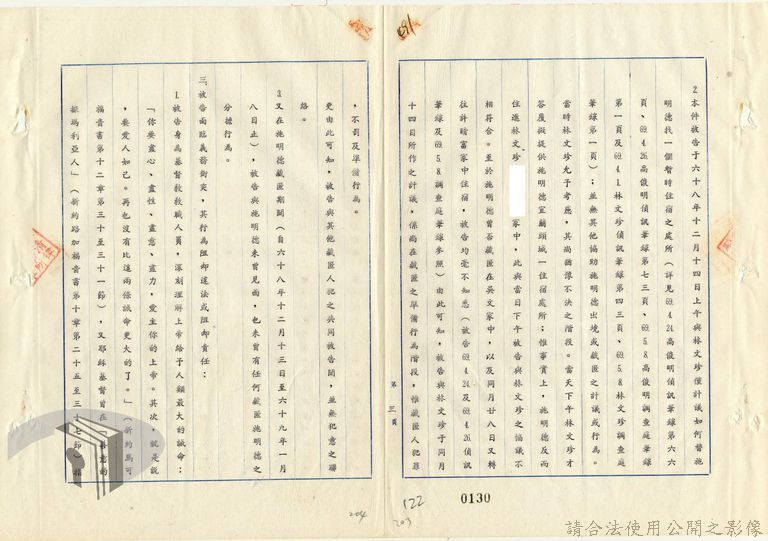 2.本件被告于六十八年十二月十四日上午與林文珍僅計議如何替施
明德找一個暫時住宿之處所(詳見69.4.24.高俊明偵訊筆錄第六六
頁、69.4.26.高俊明偵訊筆錄第七三頁、69.5.8.高俊明調查庭筆錄
第一頁及69.4.1.林文珍偵訊筆錄第四三頁、69.5.8.林文珍調查庭
筆錄第一頁);並無其他協助施明德出境或藏匿之計議或行為。
當時林文珍允予考慮,其尚猶豫不決之階段。當天下午林文珍才
答覆擬提供施明德宜蘭頭城一住宿處所;惟事實上,施明德反而
住進林文珍 家中,此與當日下午被告與林文珍之協議不
相符合。至於施明德曾否藏匿在吳文家中,以及同月廿八日又轉
往許晴富家中住宿,被告均毫不知悉(被告69.4.24.及69.4.26.偵訊
筆錄及69.5.8.調查庭筆錄參照)由此可知,被告與林文珍于同月
十四日所作之計議,係尚在藏匿之準備行為階段,惟藏匿人犯罪
第三頁
,不罰及準備行為。
更由此可知,被告與其他藏匿人犯之共同被告間,並無犯意之聯
絡。
3.又在施明德藏匿期間(自六十八年十二月十三日至六十九年一月
八日止),被告與施明德未曾見面,也未曾有任何藏匿施明德之
分擔行為。
三、被告面臨義務衝突,其行為阻却違法或阻却責任:
1.被告身為基督教教職人員,深刻理解上帝給予人類最大的誡命:
「你要盡心、盡性、盡意、盡力,愛主你的上帝。其次,就是說
,要愛人如己。再也沒有比這兩條誡命更大的了。」(新約馬可
福音書第十二章第三十至三十一節),又耶穌基督曾在「善意的
撒瑪利亞人」(新約路加福音書第十章第二十五至三十七節)指
0130
122
203
204
請合法使用公開之影像